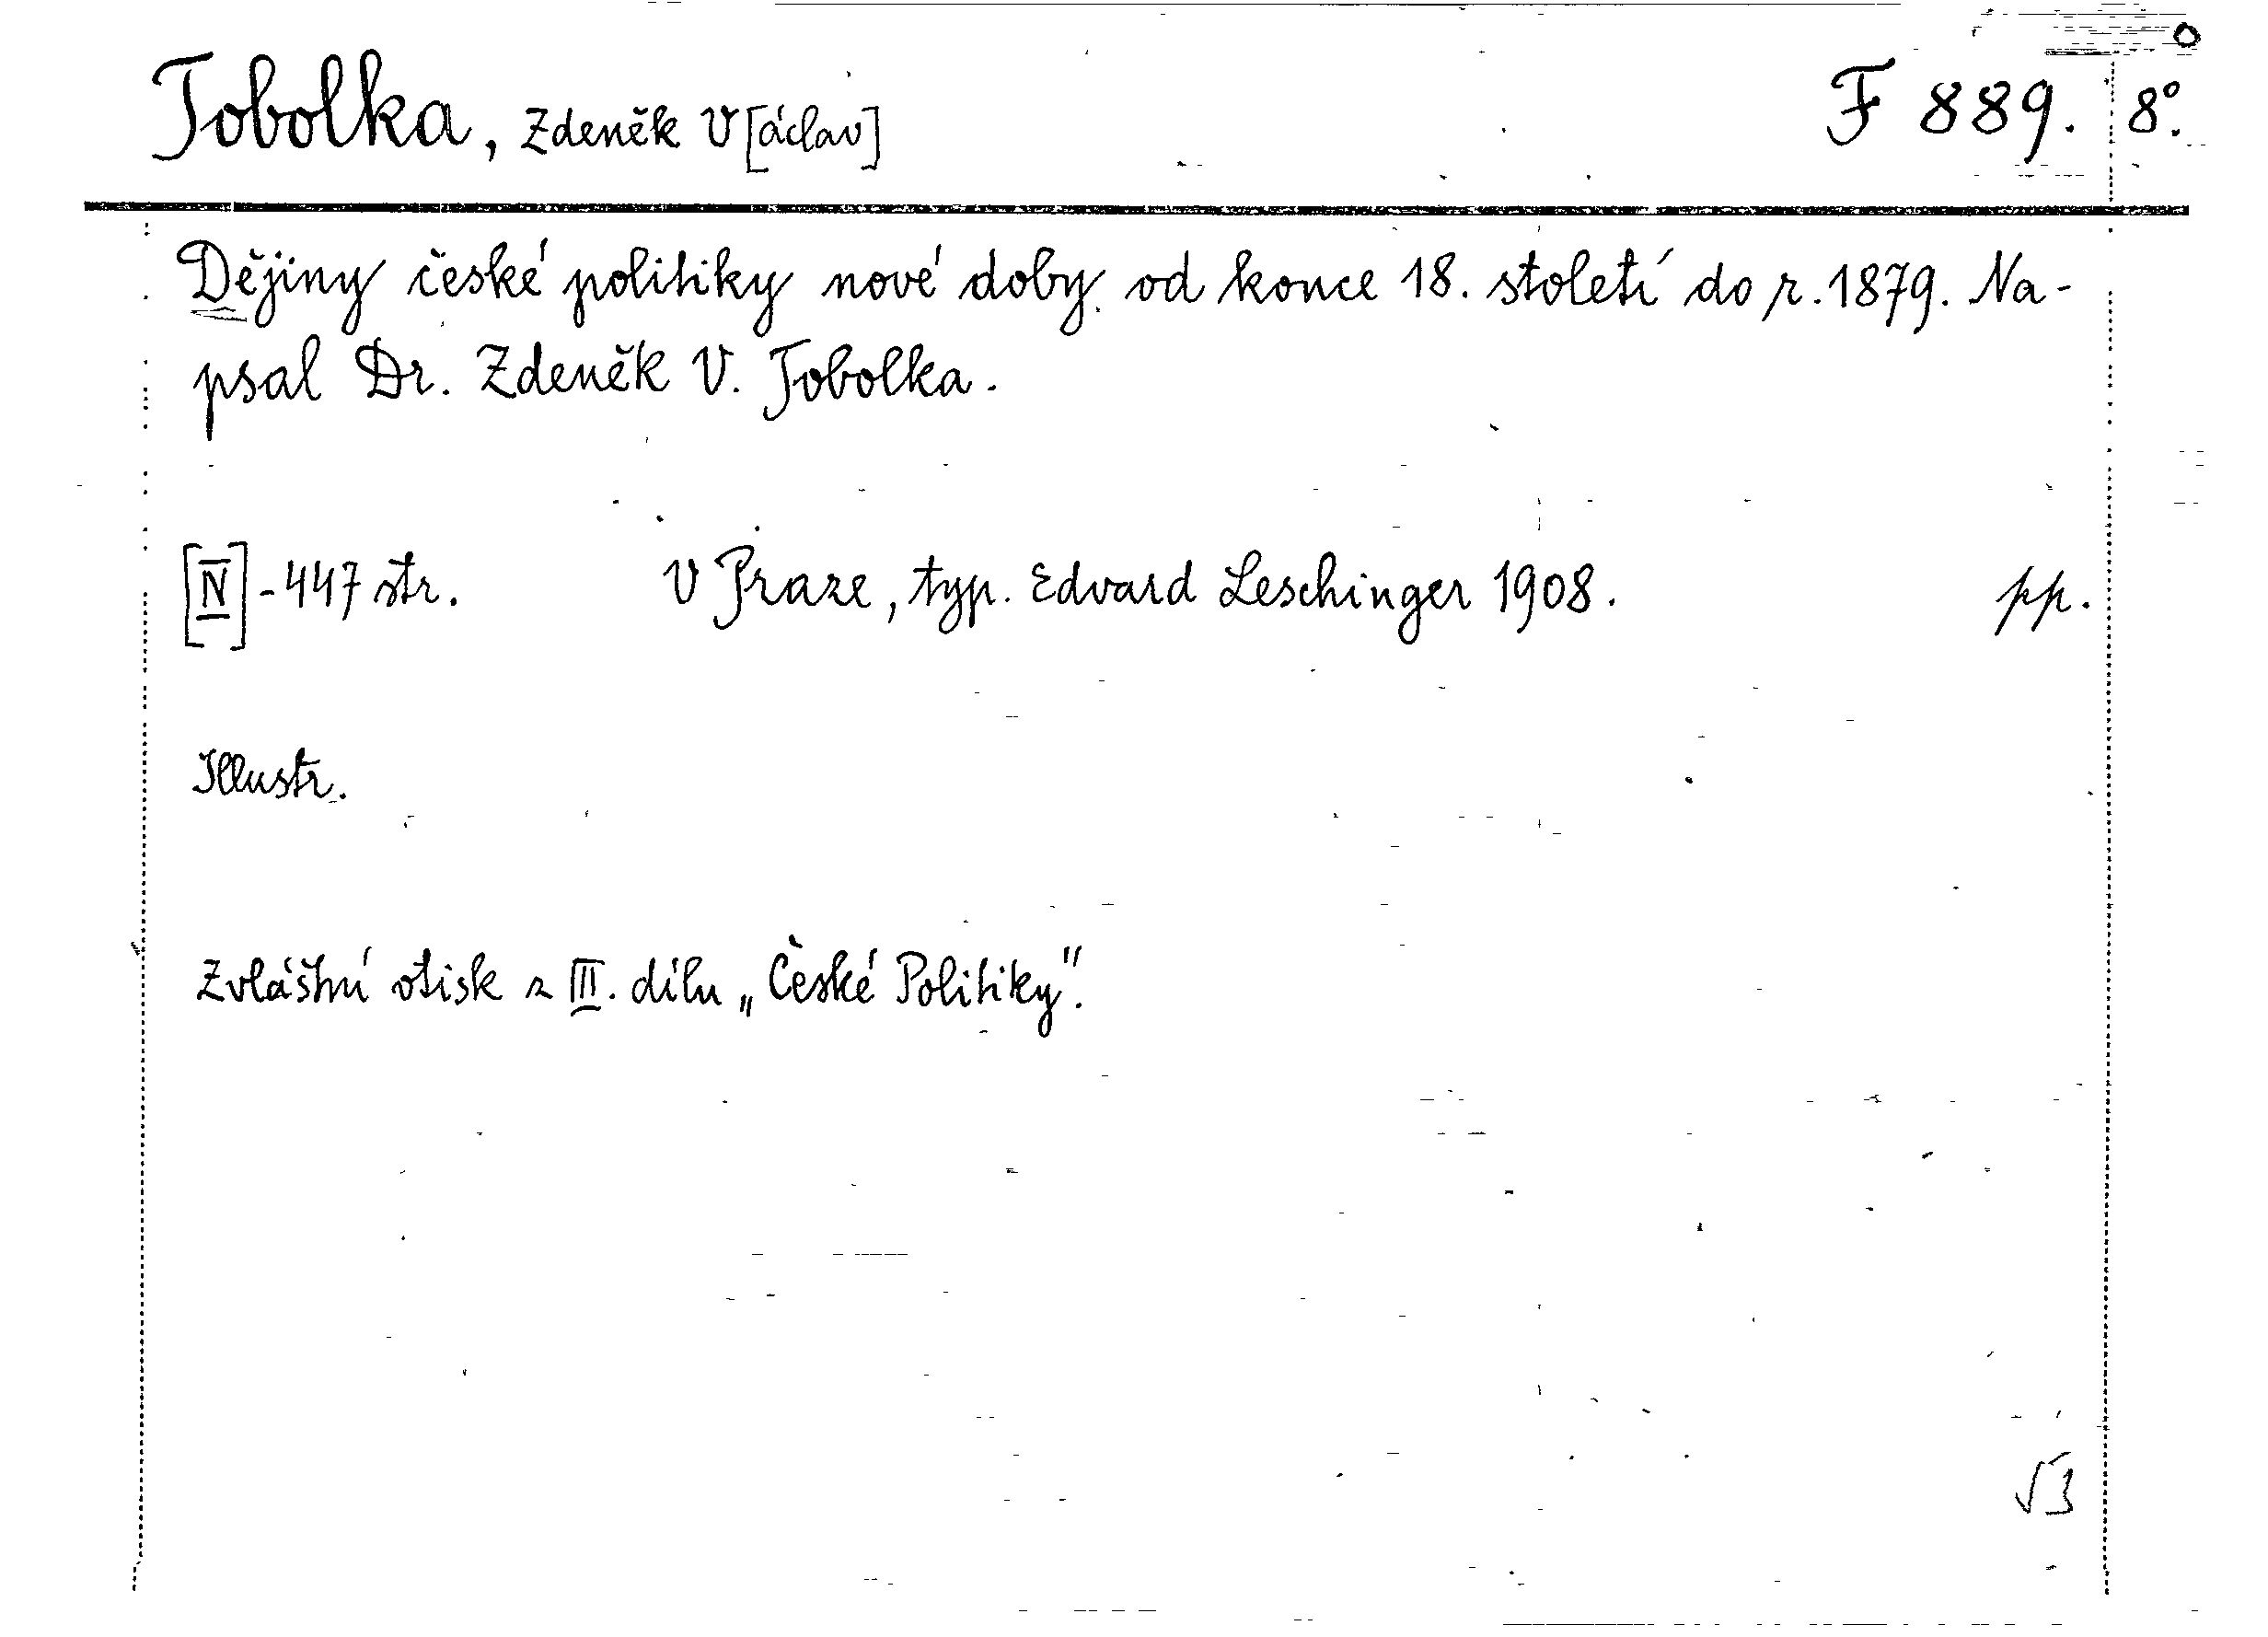 Tobolka, Zdeněk V[áclav] F 889. 8°.
Dějiny české politiky nové doby od konce 18. století do r. 1879. Na-
psal Dr. Zdeněk V. Tobolka.
[IV] - 447 str. V Praze, typ. Edvard Leschinger 1908. pp.
Illustr.
Zvláštní otisk z III. dílu „České Politiky".